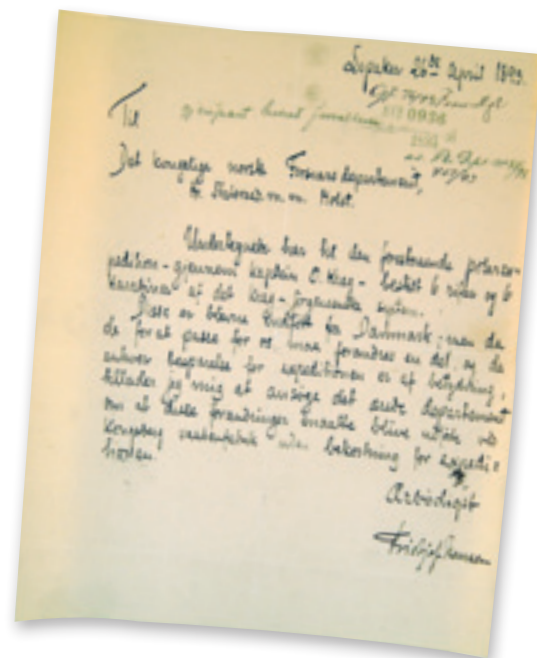 Lysaker 26de April 1893.
0936
Til
Det kongelige norske Forsvarsdepartement,
Holst.
Undertegnede har til den forestaaende polarex-
pedition - gjennem kaptein O. Krag - bestilt 6 rifler og 6
karabiner af det Krag-Jørgensenske system.
Disse er blevne fra Danmark; men da
de for at passe for os maa forandres en del, og da
enhver besparelse for expeditionen er af betydning,
tillader jeg mig at ansøge det ærede departement
om at disse forandringer maatte blive udført ved
Kongsberg vaabenfabrik uden bekostning for expedi=
tionen.
Ærbødigst
Fridtjof Nansen